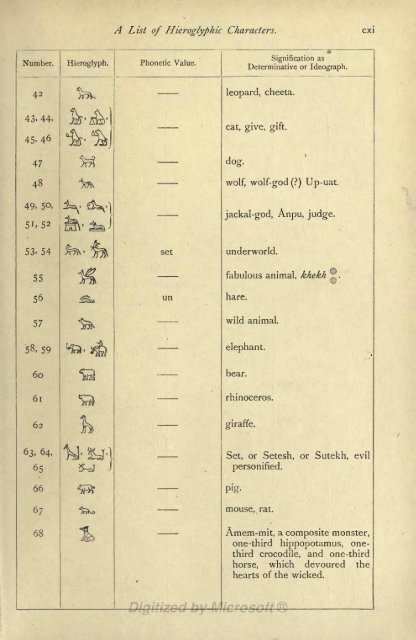 A List of Hieroglyphic Characters. cxi
Number. Hieroglyph. Phonetic Value. Signification as
Determinative or Ideograph.
42 — leopard, cheeta.
43, 44,
— cat, give, gift.
45, 46
47 — dog.
48 — wolf, wolf-god (?) Up-uat.
49, 50,
— jackal-god, Ȧnpu, judge.
51, 52
53, 54 set underworld.
55 — fabulous animal, khekh
56 un hare.
57 — wild animal.
58, 59 — elephant.
60 — bear.
61 — rhinoceros.
62 — giraffe.
63, 64, — Set, or Setesh, or Sutekh, evil
65 personified.
66 — pig.
67 — mouse, rat.
68 — Āmem-mit, a composite monster,
one-third hippopotamus, one-
third crocodile, and one-third
horse, which devoured the
hearts of the wicked.
Digitized by Microsoft ®